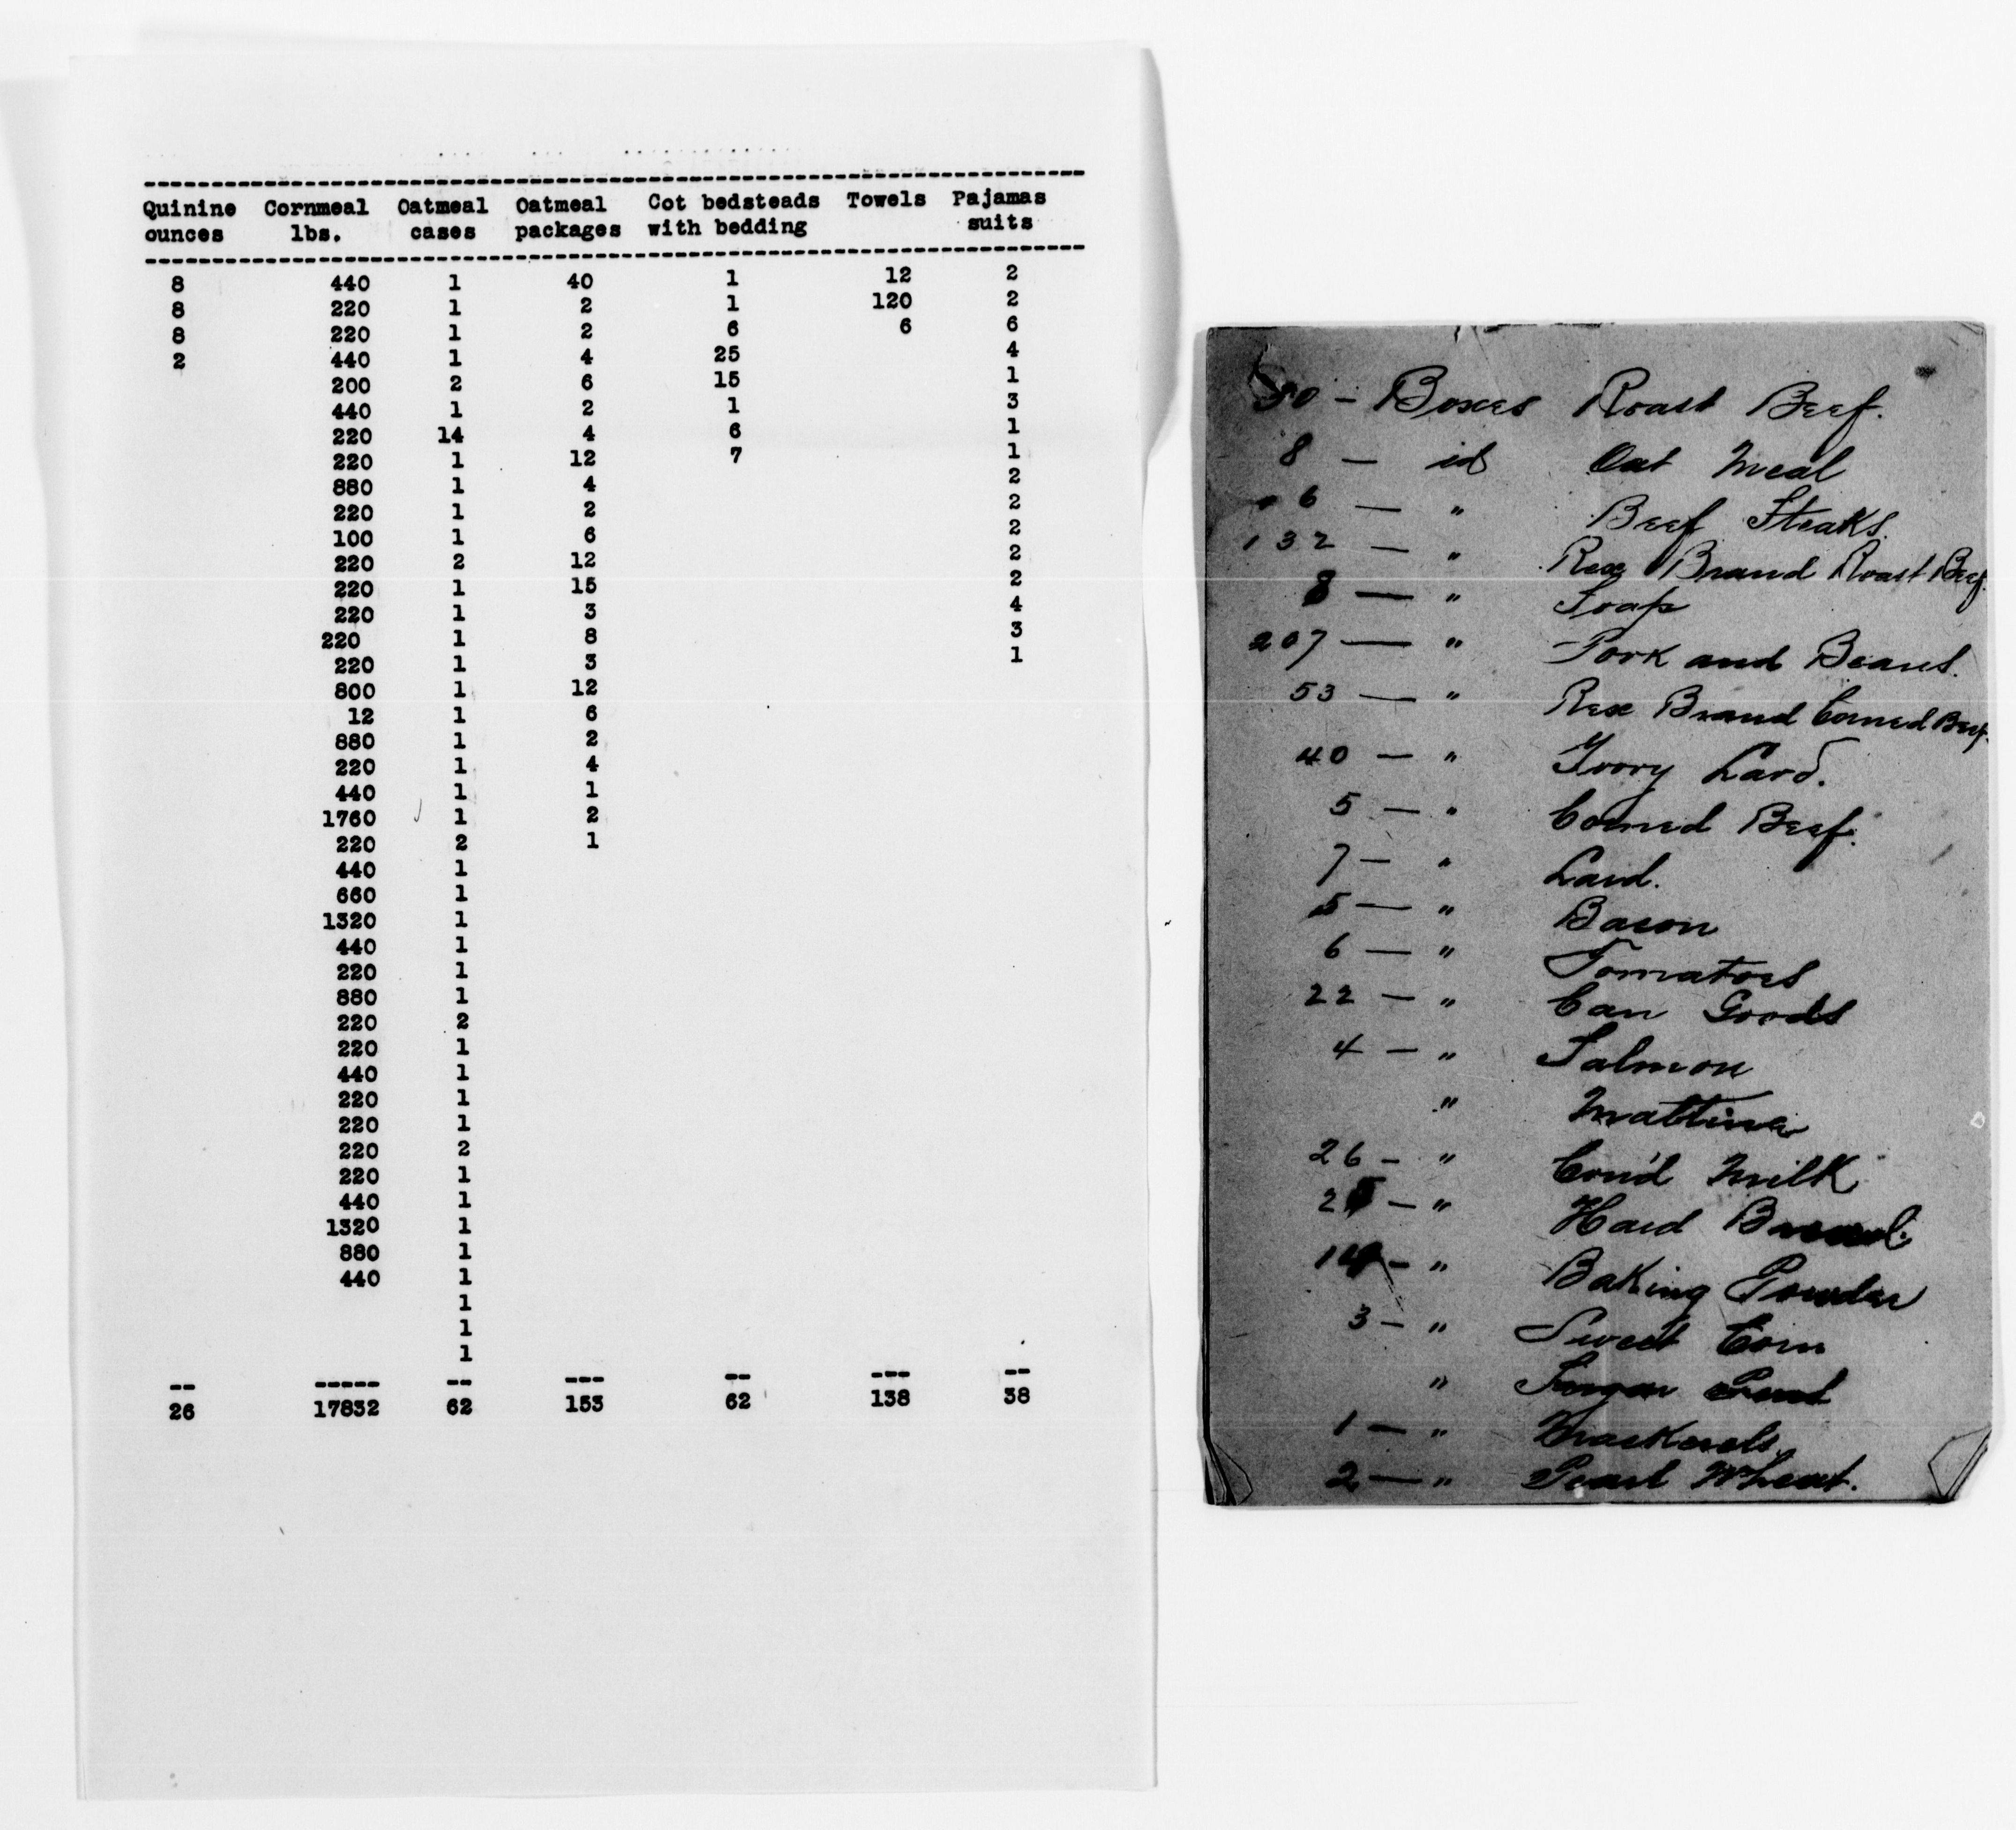 Quinine Cornmeal Oatmeal Oatmeal Cot bedsteads Towels Pajamas
ounces lbs. cases packages with bedding suits
8 440 1 40 1 12 2
8 220 1 2 1 120 2
8 220 1 2 6 6 6
2 440 1 4 25 4
200 2 6 15 1
440 1 2 1 3
220 14 4 6 1
220 1 12 7 1
880 1 4 2
220 1 2 2
100 1 6 2
220 2 12 2
220 1 15 2
220 1 3 4
220 1 8 3
220 1 3 1
800 1 12
12 1 6
880 1 2
220 1 4
440 1 1
1760 1 2
220 2 1
440 1
660 1
1320 1
440 1
220 1
880 1
220 2
220 1
440 1
220 1
220 1
220 2
220 1
440 1
1320 1
880 1
440 1
1
1
1
-- ----- -- --- -- --- --
26 17832 62 153 62 138 38
50 - Boxes Roast Beef.
8 — id Oat Meal
6 — " Beef Steaks
132 — " Rex Brand Roast Beef.
8 — " Soap
207 — " Pork and Beans.
53 — " Rex Brand Corned Beef.
40 — " Ivory Lard.
5 — " Corned Beef.
7 — " Lard.
5 — " Bacon
6 — " Tomatoes
22 — " Can Goods
4 — " Salmon
"
26 - " Con'd Milk
2 - " Hard
14 - " Baking Powder
3 - " Sweet Corn
"
1 — " Mackerels
2 — " Pearl Wheat.